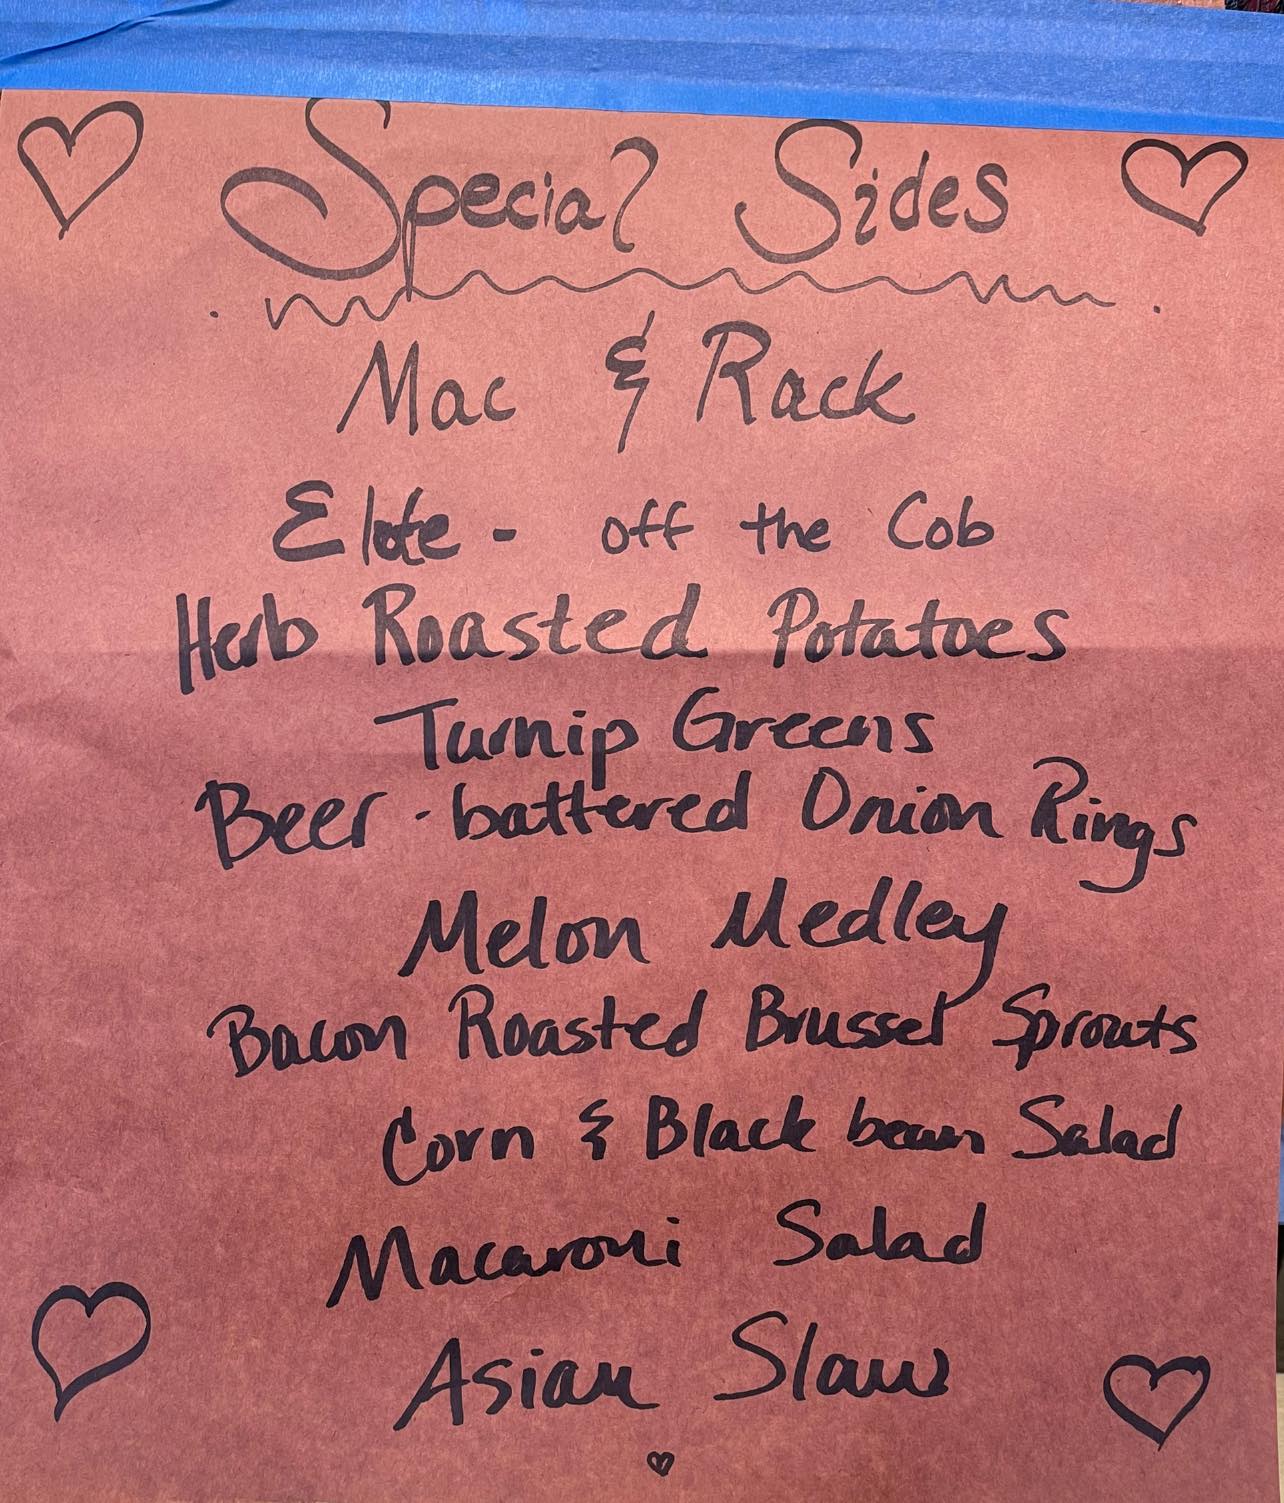 Special Sides
Mac & Rack
Elote - off the Cob
Herb Roasted Potatoes
Turnip Greens
Beer-battered Onion Rings
Melon Medley
Bacon Roasted Brussel Sprouts
Corn & Black bean Salad
Macaroni Salad
Asian Slaw